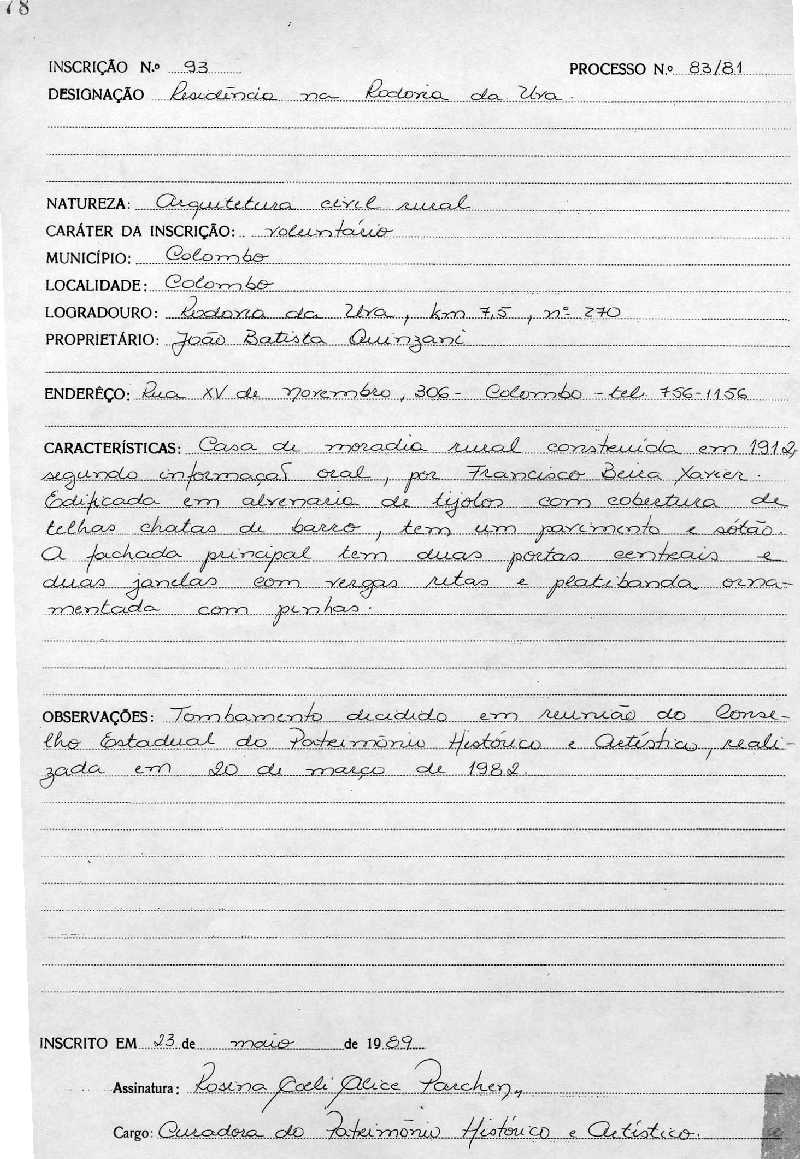 78
INSCRIÇÃO N.º 93 PROCESSO N.º 83/81
DESIGNAÇÃO Residência na Rodovia da Uva.
NATUREZA: Arquitetura civil rural
CARÁTER DA INSCRIÇÃO: voluntário
MUNICÍPIO: Colombo
LOCALIDADE: Colombo
LOGRADOURO: Rodovia da Uva, km 7,5, nº 270
PROPRIETÁRIO: João Batista Quinzani
ENDERÊÇO: Rua XV de Novembro, 306 - Colombo - tel: 756-1156
CARACTERÍSTICAS: Casa de moradia rural construída em 1912,
segundo informação oral, por Francisco Xavier.
Edificada em alvenaria de tijolos com cobertura de
telhas chatas de barro, tem um pavimento e sótão.
A fachada principal tem duas portas centrais e
duas janelas com vergas retas e platibanda orna-
mentada com pinhas.
OBSERVAÇÕES: Tombamento decidido em reunião do Conse-
lho Estadual do Patrimônio Histórico e Artístico, reali-
zada em 20 de março de 1982.
INSCRITO EM 23 de maio de 1989
Assinatura: Rosina Coeli Alice Parchen,
Cargo: Curadora do Patrimônio Histórico e Artístico.